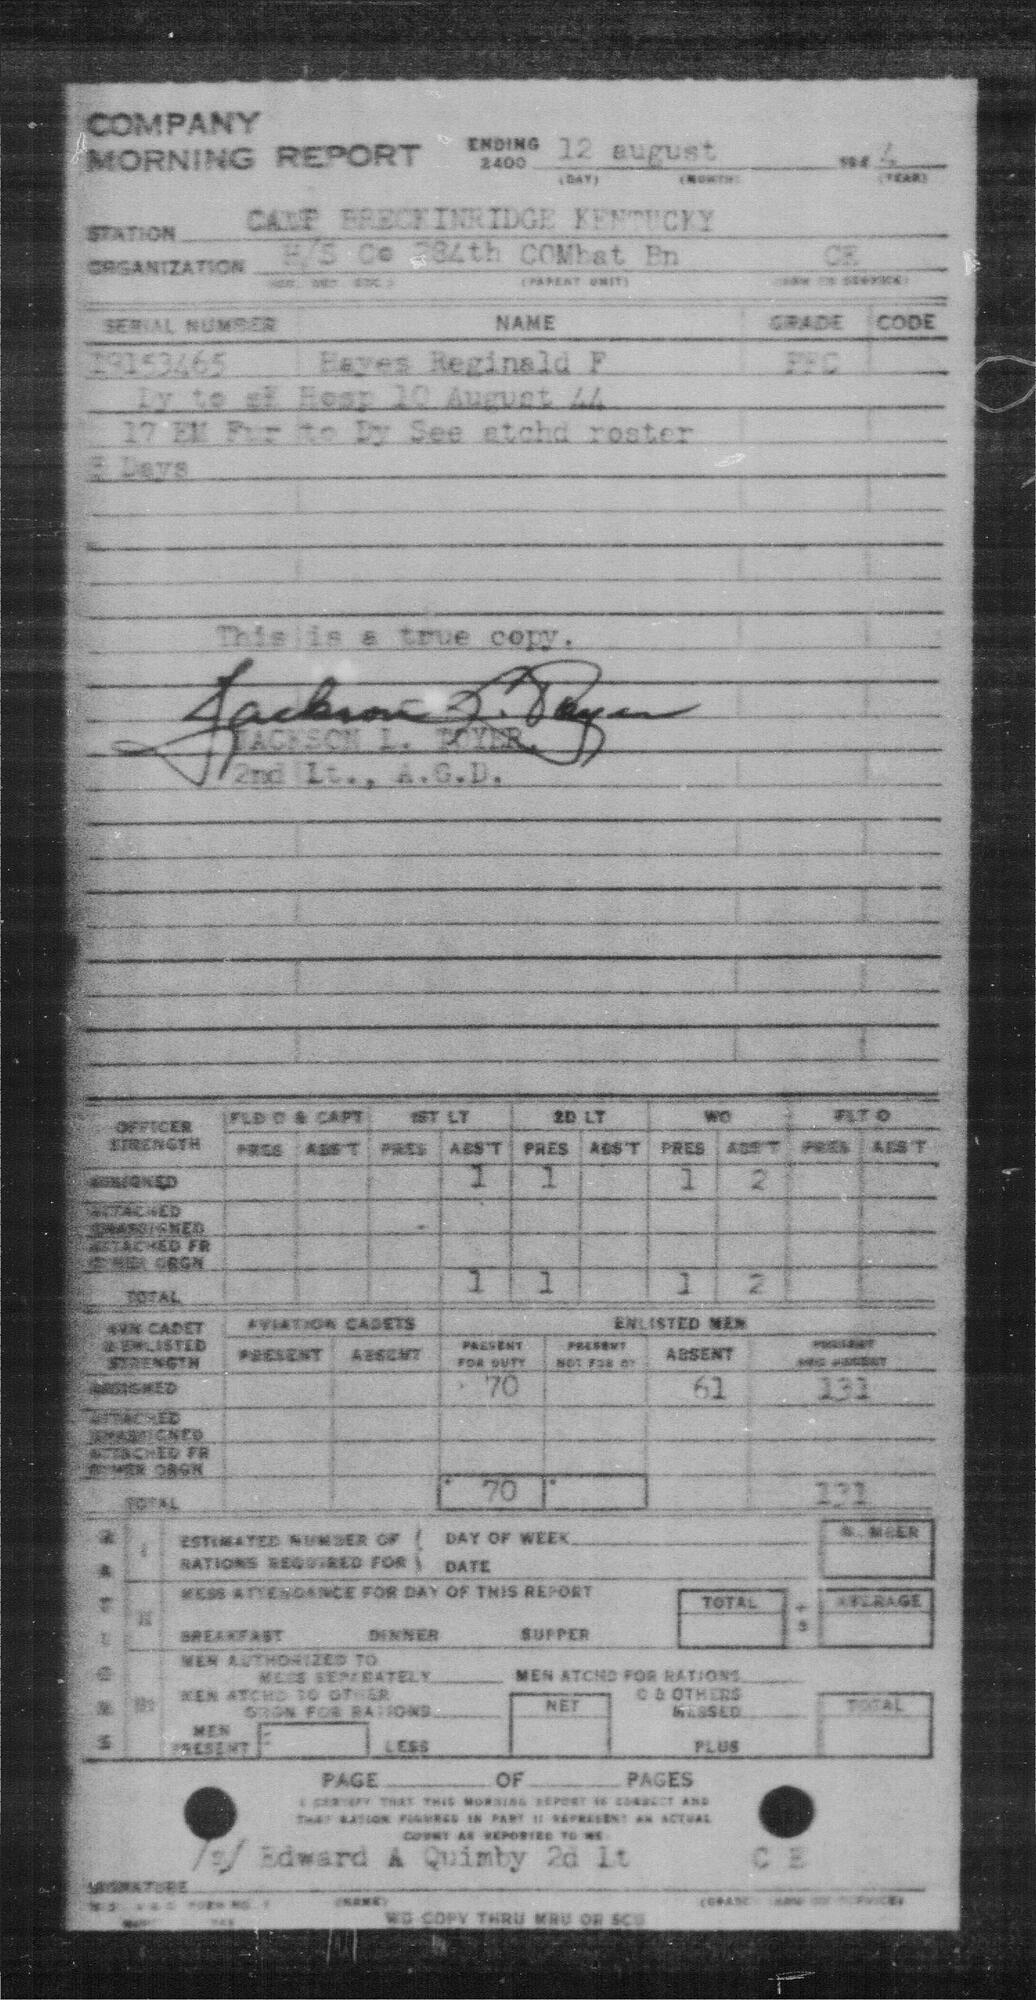 COMPANY
MORNING REPORT ENDING 2400 12 august 194 4
(DAY) (MONTH) (YEAR)
STATION CAMP BRECKINRIDGE KENTUCKY
ORGANIZATION H/S Co 384th COMbat Bn CE
(PARENT UNIT)
SERIAL NUMBER NAME GRADE CODE
19153465 Hayes Reginald F PFC
Dy to sk Hosp 10 August 44
17 EM Fur to Dy See atchd roster
Days
This is a true copy.
Jackson L. Poyer
JACKSON L. POYER,
2nd Lt., A.G.D.
OFFICER STRENGTH FLD O & CAPT 1ST LT 2D LT WO FLT O
PRES ABS'T PRES ABS'T PRES ABS'T PRES ABS'T PRES ABS'T
ASSIGNED 1 1 1 2
ATTACHED UNASSIGNED
ATTACHED FR OTHER ORGN
TOTAL 1 1 1 2
AVN CADET & ENLISTED STRENGTH AVIATION CADETS ENLISTED MEN
PRESENT ABSENT PRESENT FOR DUTY PRESENT NOT FOR DY ABSENT PRESENT AND ABSENT
ASSIGNED 70 61 131
ATTACHED UNASSIGNED
ATTACHED FR OTHER ORGN
TOTAL 70 131
RATIONS
I ESTIMATED NUMBER OF RATIONS REQUIRED FOR DAY OF WEEK DATE NUMBER
II MESS ATTENDANCE FOR DAY OF THIS REPORT TOTAL ÷ 3 AVERAGE
BREAKFAST DINNER SUPPER
III MEN AUTHORIZED TO MESS SEPARATELY MEN ATCHD FOR RATIONS
MEN ATCHD TO OTHER ORGN FOR RATIONS NET O & OTHERS MESSED TOTAL
MEN PRESENT LESS PLUS
PAGE OF PAGES
I CERTIFY THAT THIS MORNING REPORT IS CORRECT AND
THAT RATION FIGURES IN PART II REPRESENT AN ACTUAL
COUNT AS REPORTED TO ME
/s/ Edward A Quimby 2d lt C E
SIGNATURE
(NAME) (GRADE) (ARM OR SERVICE)
WD COPY THRU MRU OR SCU